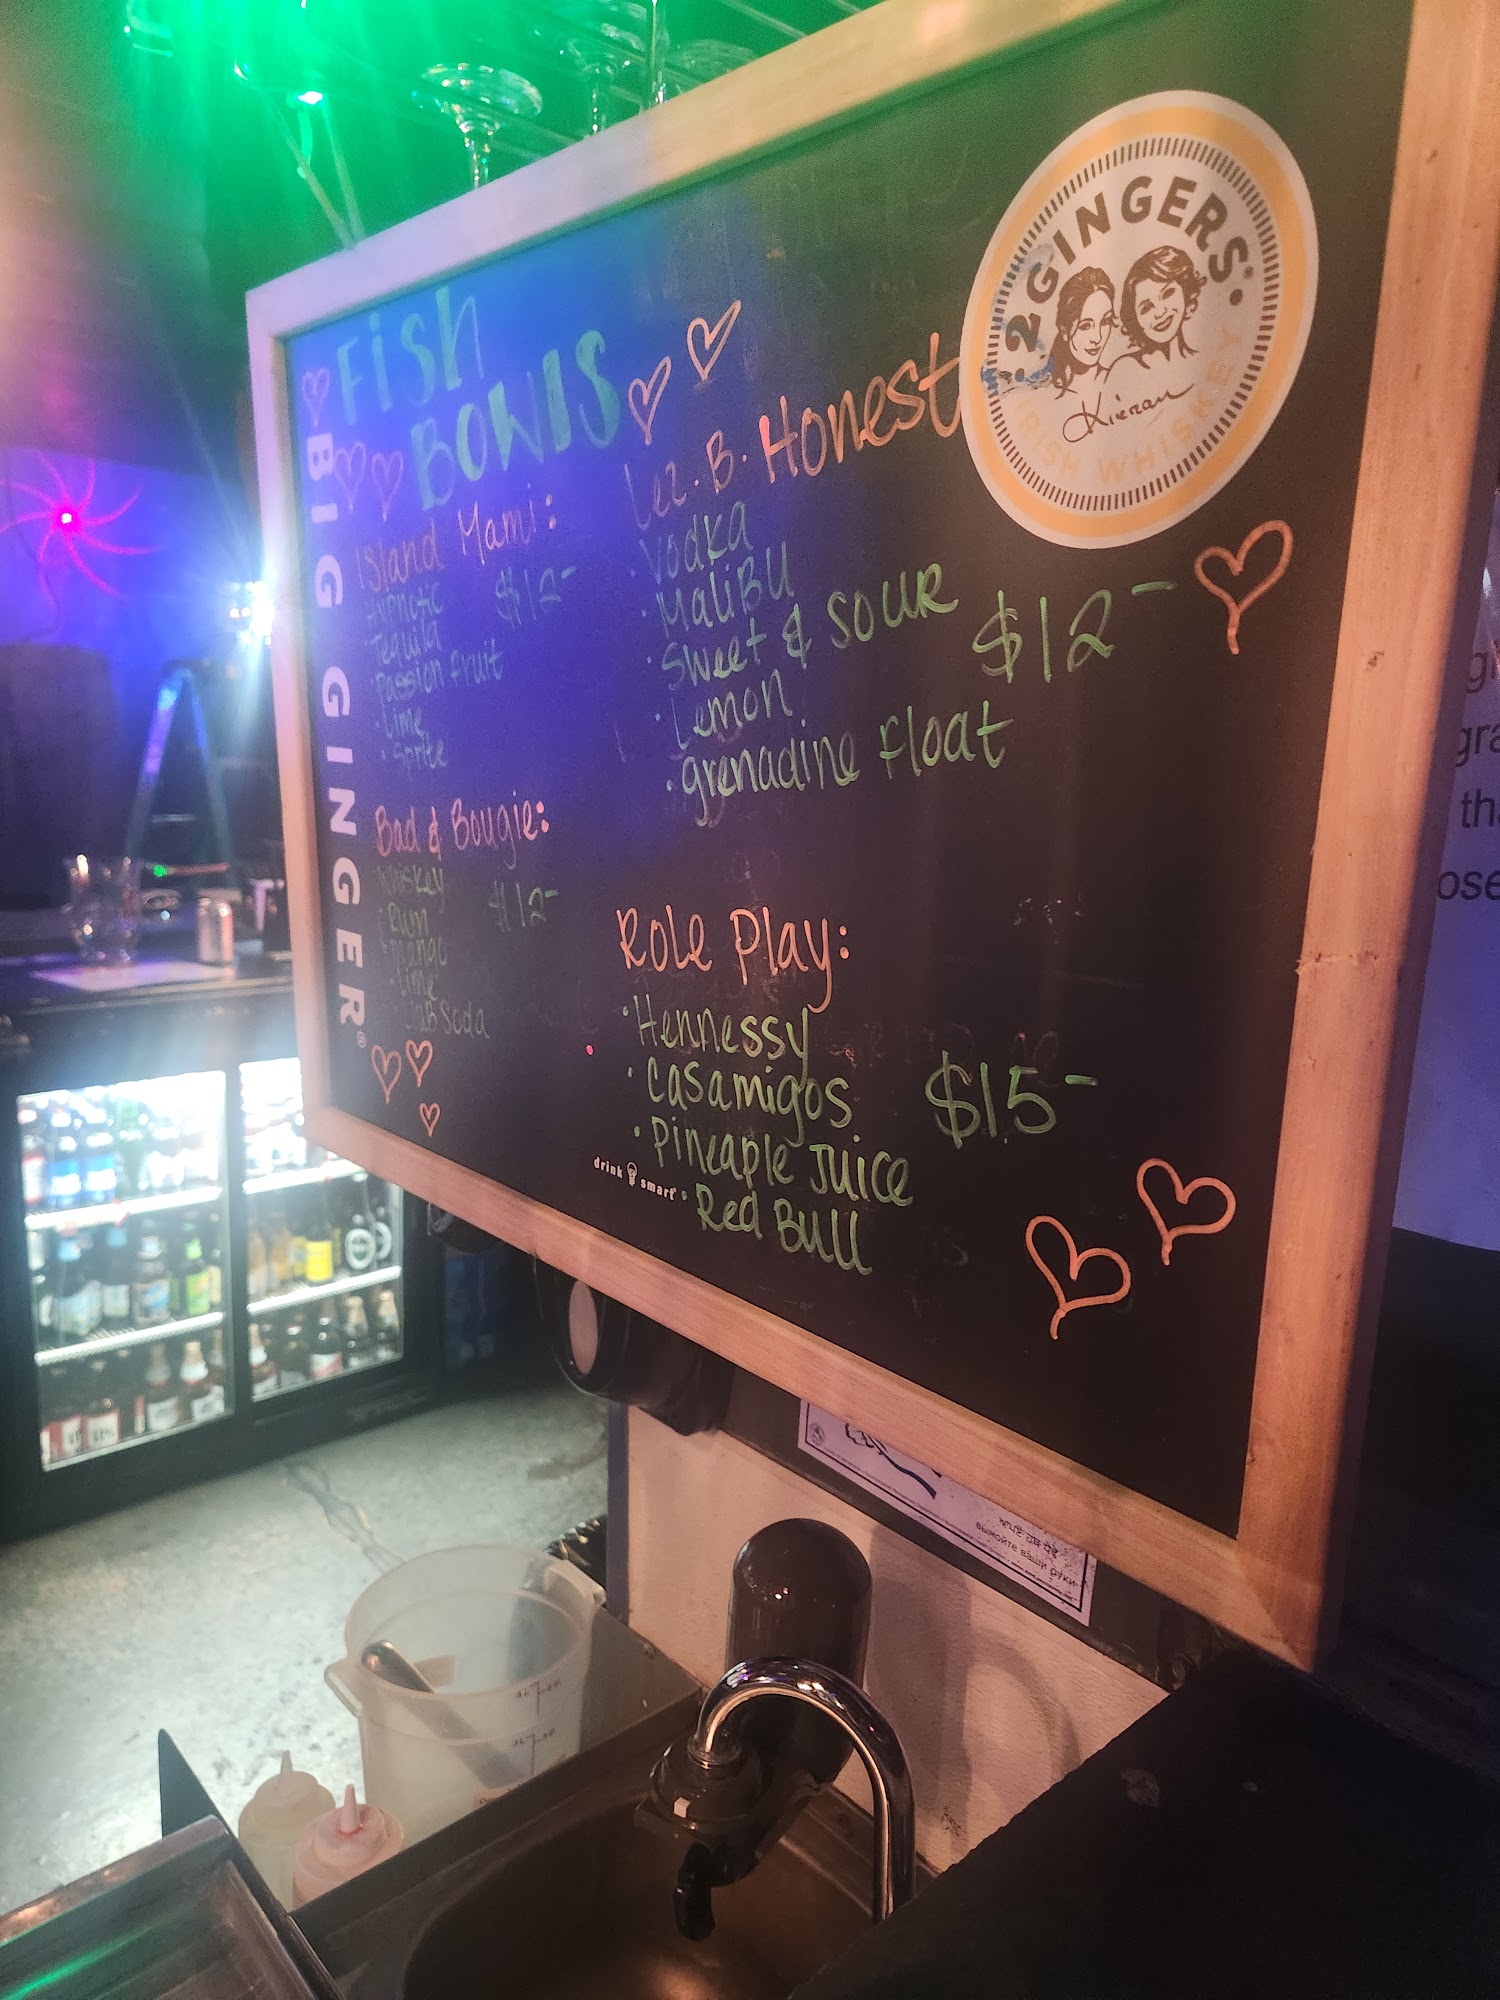 Fish
Bowls
BIG GINGER®
Island Mami:
Hipnotic
Tequila
Passion Fruit
Lime
Sprite
$12-
Bad & Bougie:
Whiskey
Rum
Mango
Lime
Club Soda
$12-
Lez. B. Honest
Vodka
Malibu
Sweet & Sour
Lemon
Grenadine Float
$12-
Role Play:
Hennessy
Casamigos
Pineapple Juice
Red Bull
$15-
drink smart®
2 GINGERS®
Kieran
IRISH WHISKEY
вымойте ваши